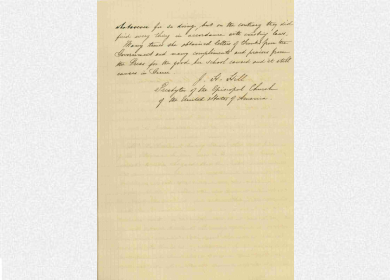 for so doing, but on the contrary they did
find every thing in accordance with existing laws.
Many times she obtained letters of thanks from the
Government and many compliments and praises from
the Press for the good her school caused and it still
causes in Greece
J. H. Hill
Presbyter of the Episcopal Church
of the United States of America.